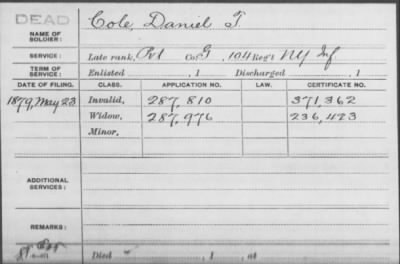 DEAD
NAME OF SOLDIER: Cole, Daniel T.
SERVICE: Late rank, Pvt Co. G, 104 Reg't NY Inf
TERM OF SERVICE: Enlisted , 1 Discharged , 1
DATE OF FILING. CLASS. APPLICATION NO. LAW. CERTIFICATE NO.
1879, May 23 Invalid, 287,810 371,362
Widow, 287,976 236,423
Minor,
ADDITIONAL SERVICES:
REMARKS:
Died , 1 , at